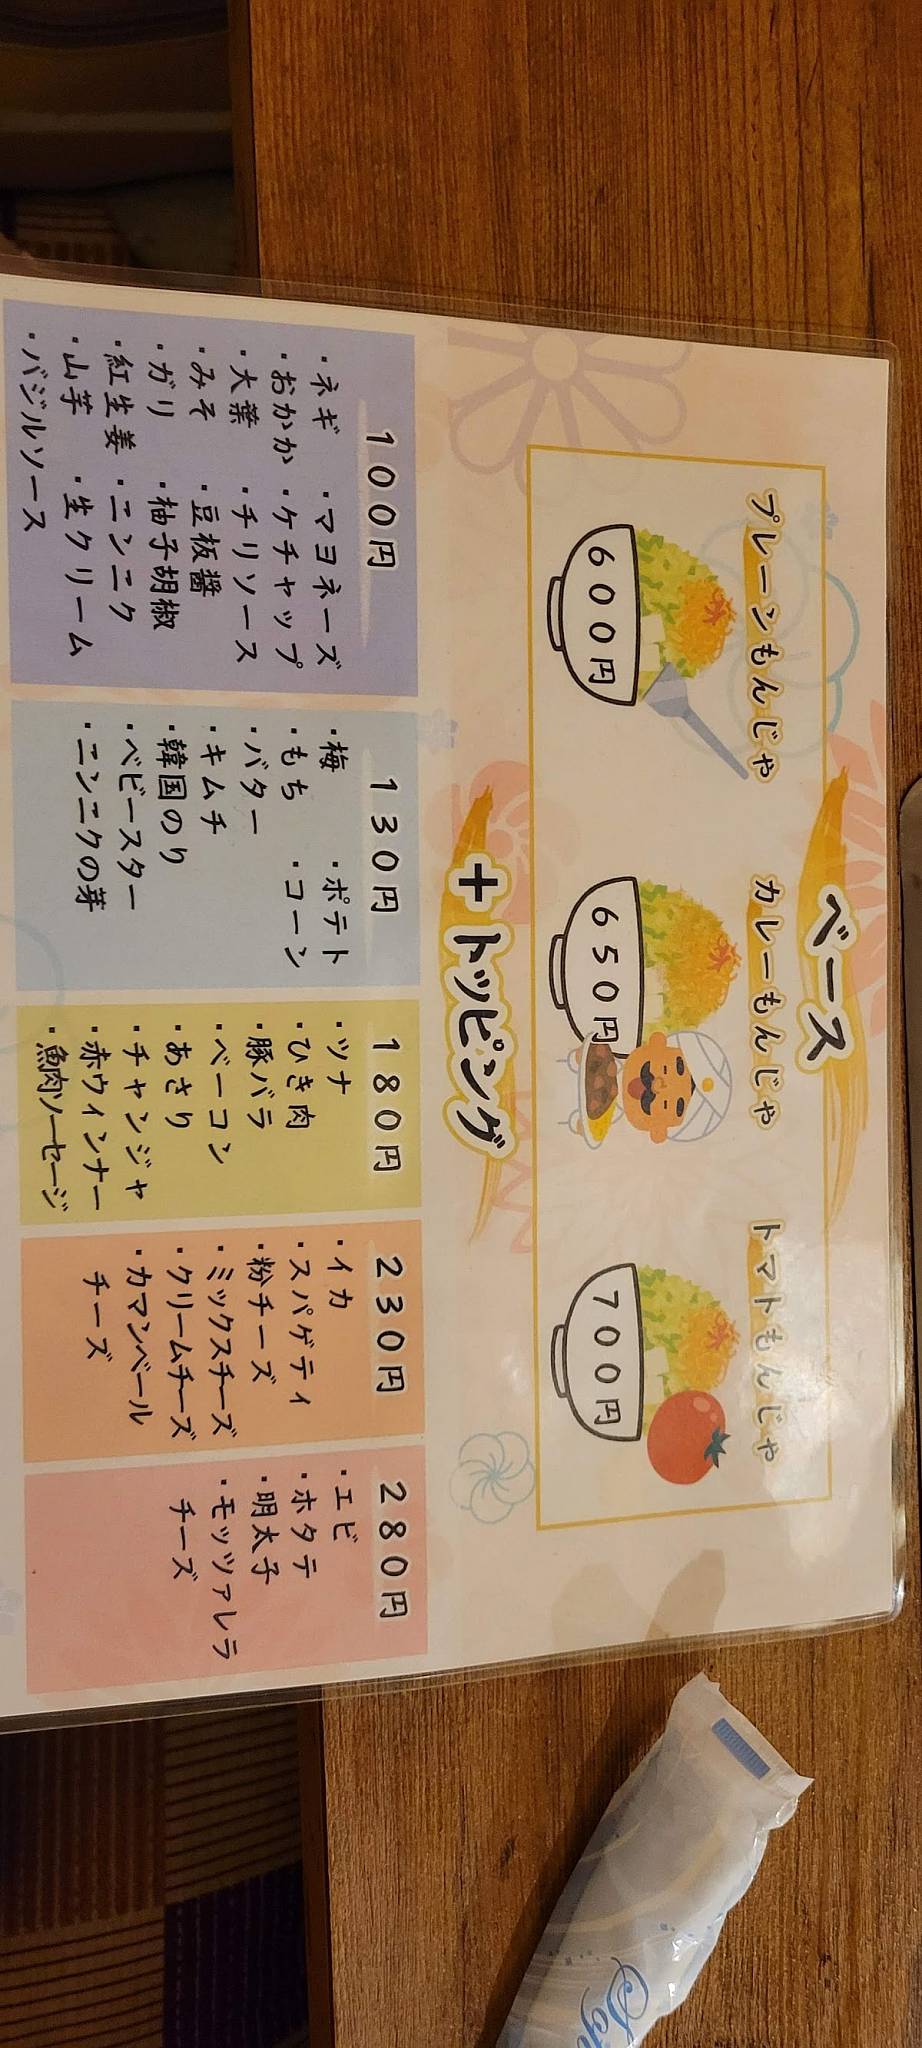 ベース
プレーンもんじゃ
600円
カレーもんじゃ
650円
トマトもんじゃ
700円
+トッピング
100円
・ネギ ・マヨネーズ
・おかか ・ケチャップ
・大葉 ・チリソース
・みそ ・豆板醤
・ガリ ・柚子胡椒
・紅生姜 ・ニンニク
・山芋 ・生クリーム
・バジルソース
130円
・梅 ・ポテト
・もち ・コーン
・バター
・キムチ
・韓国のり
・ベビースター
・ニンニクの芽
180円
・ツナ
・ひき肉
・豚バラ
・ベーコン
・あさり
・チャンジャ
・赤ウィンナー
・魚肉ソーセージ
230円
・イカ
・スパゲティ
・粉チーズ
・ミックスチーズ
・クリームチーズ
・カマンベール
チーズ
280円
・エビ
・ホタテ
・明太子
・モッツァレラ
チーズ